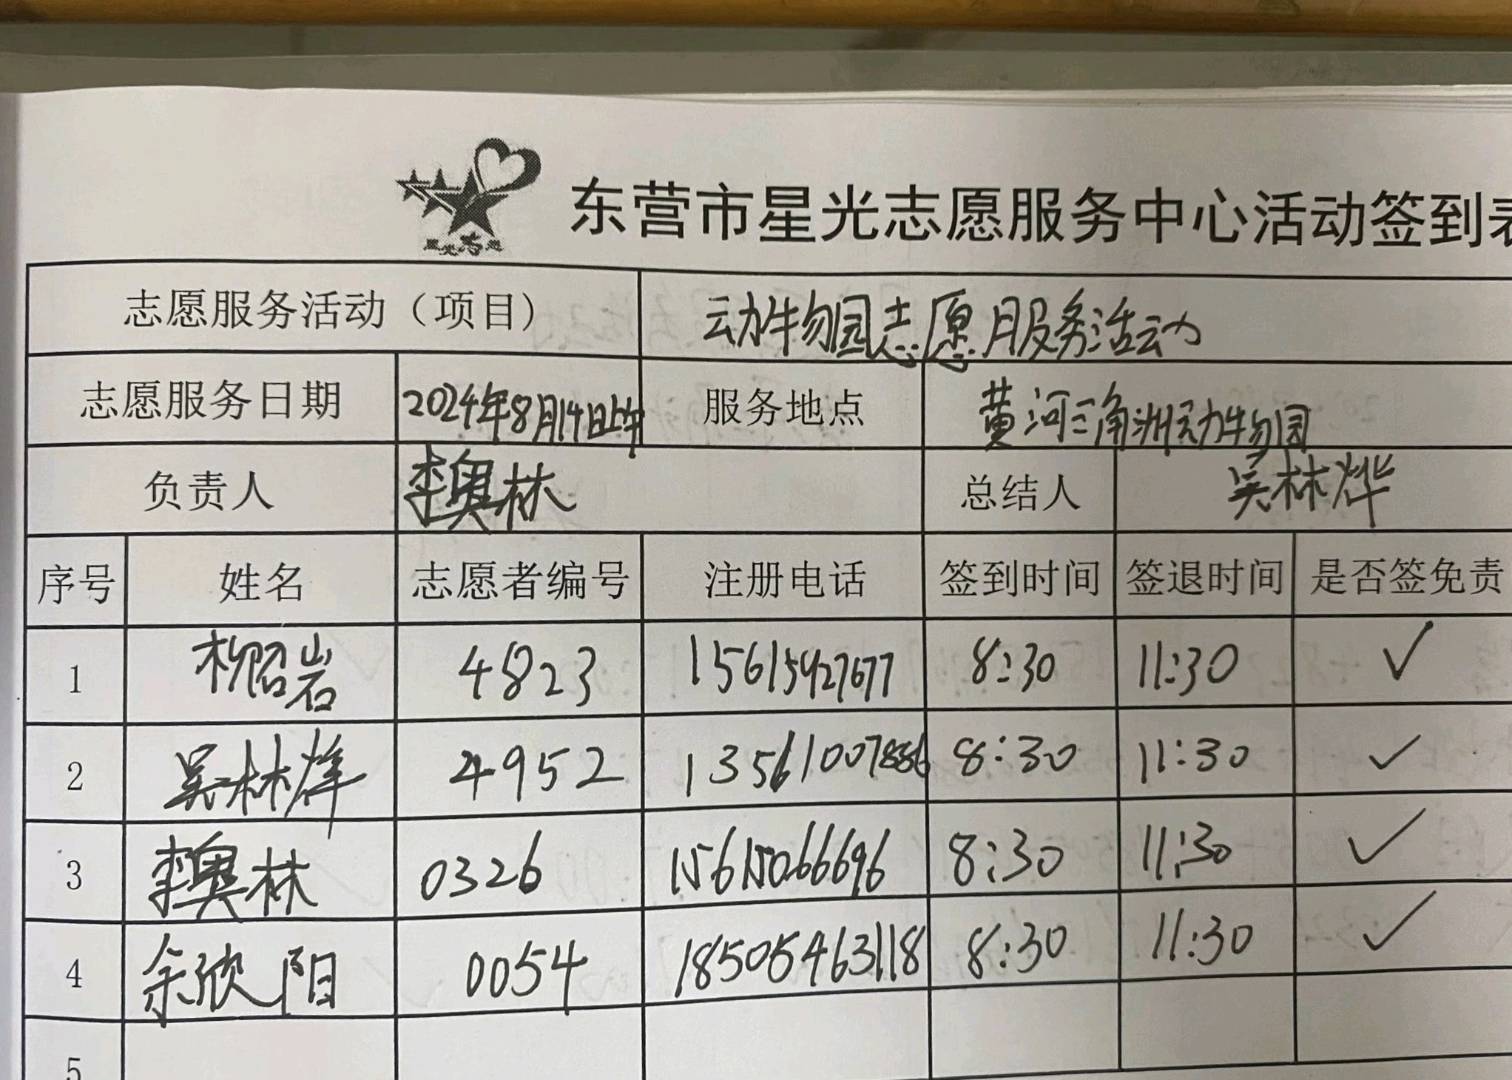 星光志愿
东营市星光志愿服务中心活动签到表
志愿服务活动（项目） 动物园志愿服务活动
志愿服务日期 2024年8月14日上午 服务地点 黄河三角洲动物园
负责人 李奥林 总结人 吴林烨
序号 姓名 志愿者编号 注册电话 签到时间 签退时间 是否签免责
1 柳昭岩 4823 15615927677 8:30 11:30 ✓
2 吴林烨 4952 13561007886 8:30 11:30 ✓
3 李奥林 0326 15615066696 8:30 11:30 ✓
4 余欣阳 0054 18505463118 8:30 11:30 ✓
5